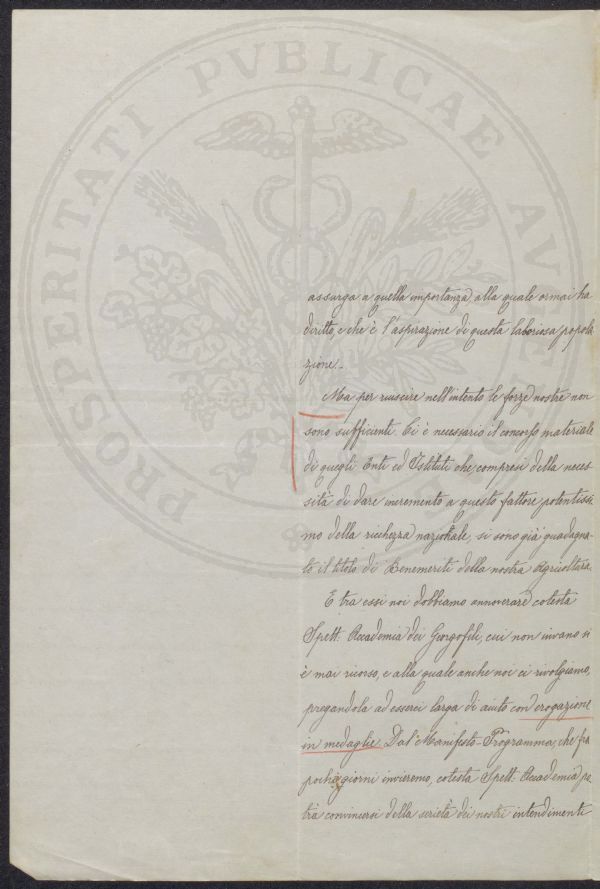 PROSPERITATI PVBLICAE AVGENDAE
assurga a quella importanza, alla quale ormai ha
diritto, e che è l'aspirazione di questa laboriosa popola
zione.-
Ma per riuscire nell'intento le forze nostre non
sono sufficienti. Ci è necessario il concorso materiale
di quegli Enti ed Istituti che compresi della neces
sità di dare incremento a questo fattore potentissi
mo della ricchezza nazionale, si sono già guadagna-
to il titolo di Benemeriti della nostra Agricoltura.
E tra essi noi dobbiamo annoverare cotesta
Spett. Accademia dei Georgofili, cui non invano si
è mai ricorso, e alla quale anche noi ci rivolgiamo,
pregandola ad esserci larga di aiuto con erogazione
in medaglie. Dal Manifesto-Programma, che fra
pochi giorni invieremo, cotesta Spett. Accademia po
trà convincersi della serietà dei nostri intendimenti